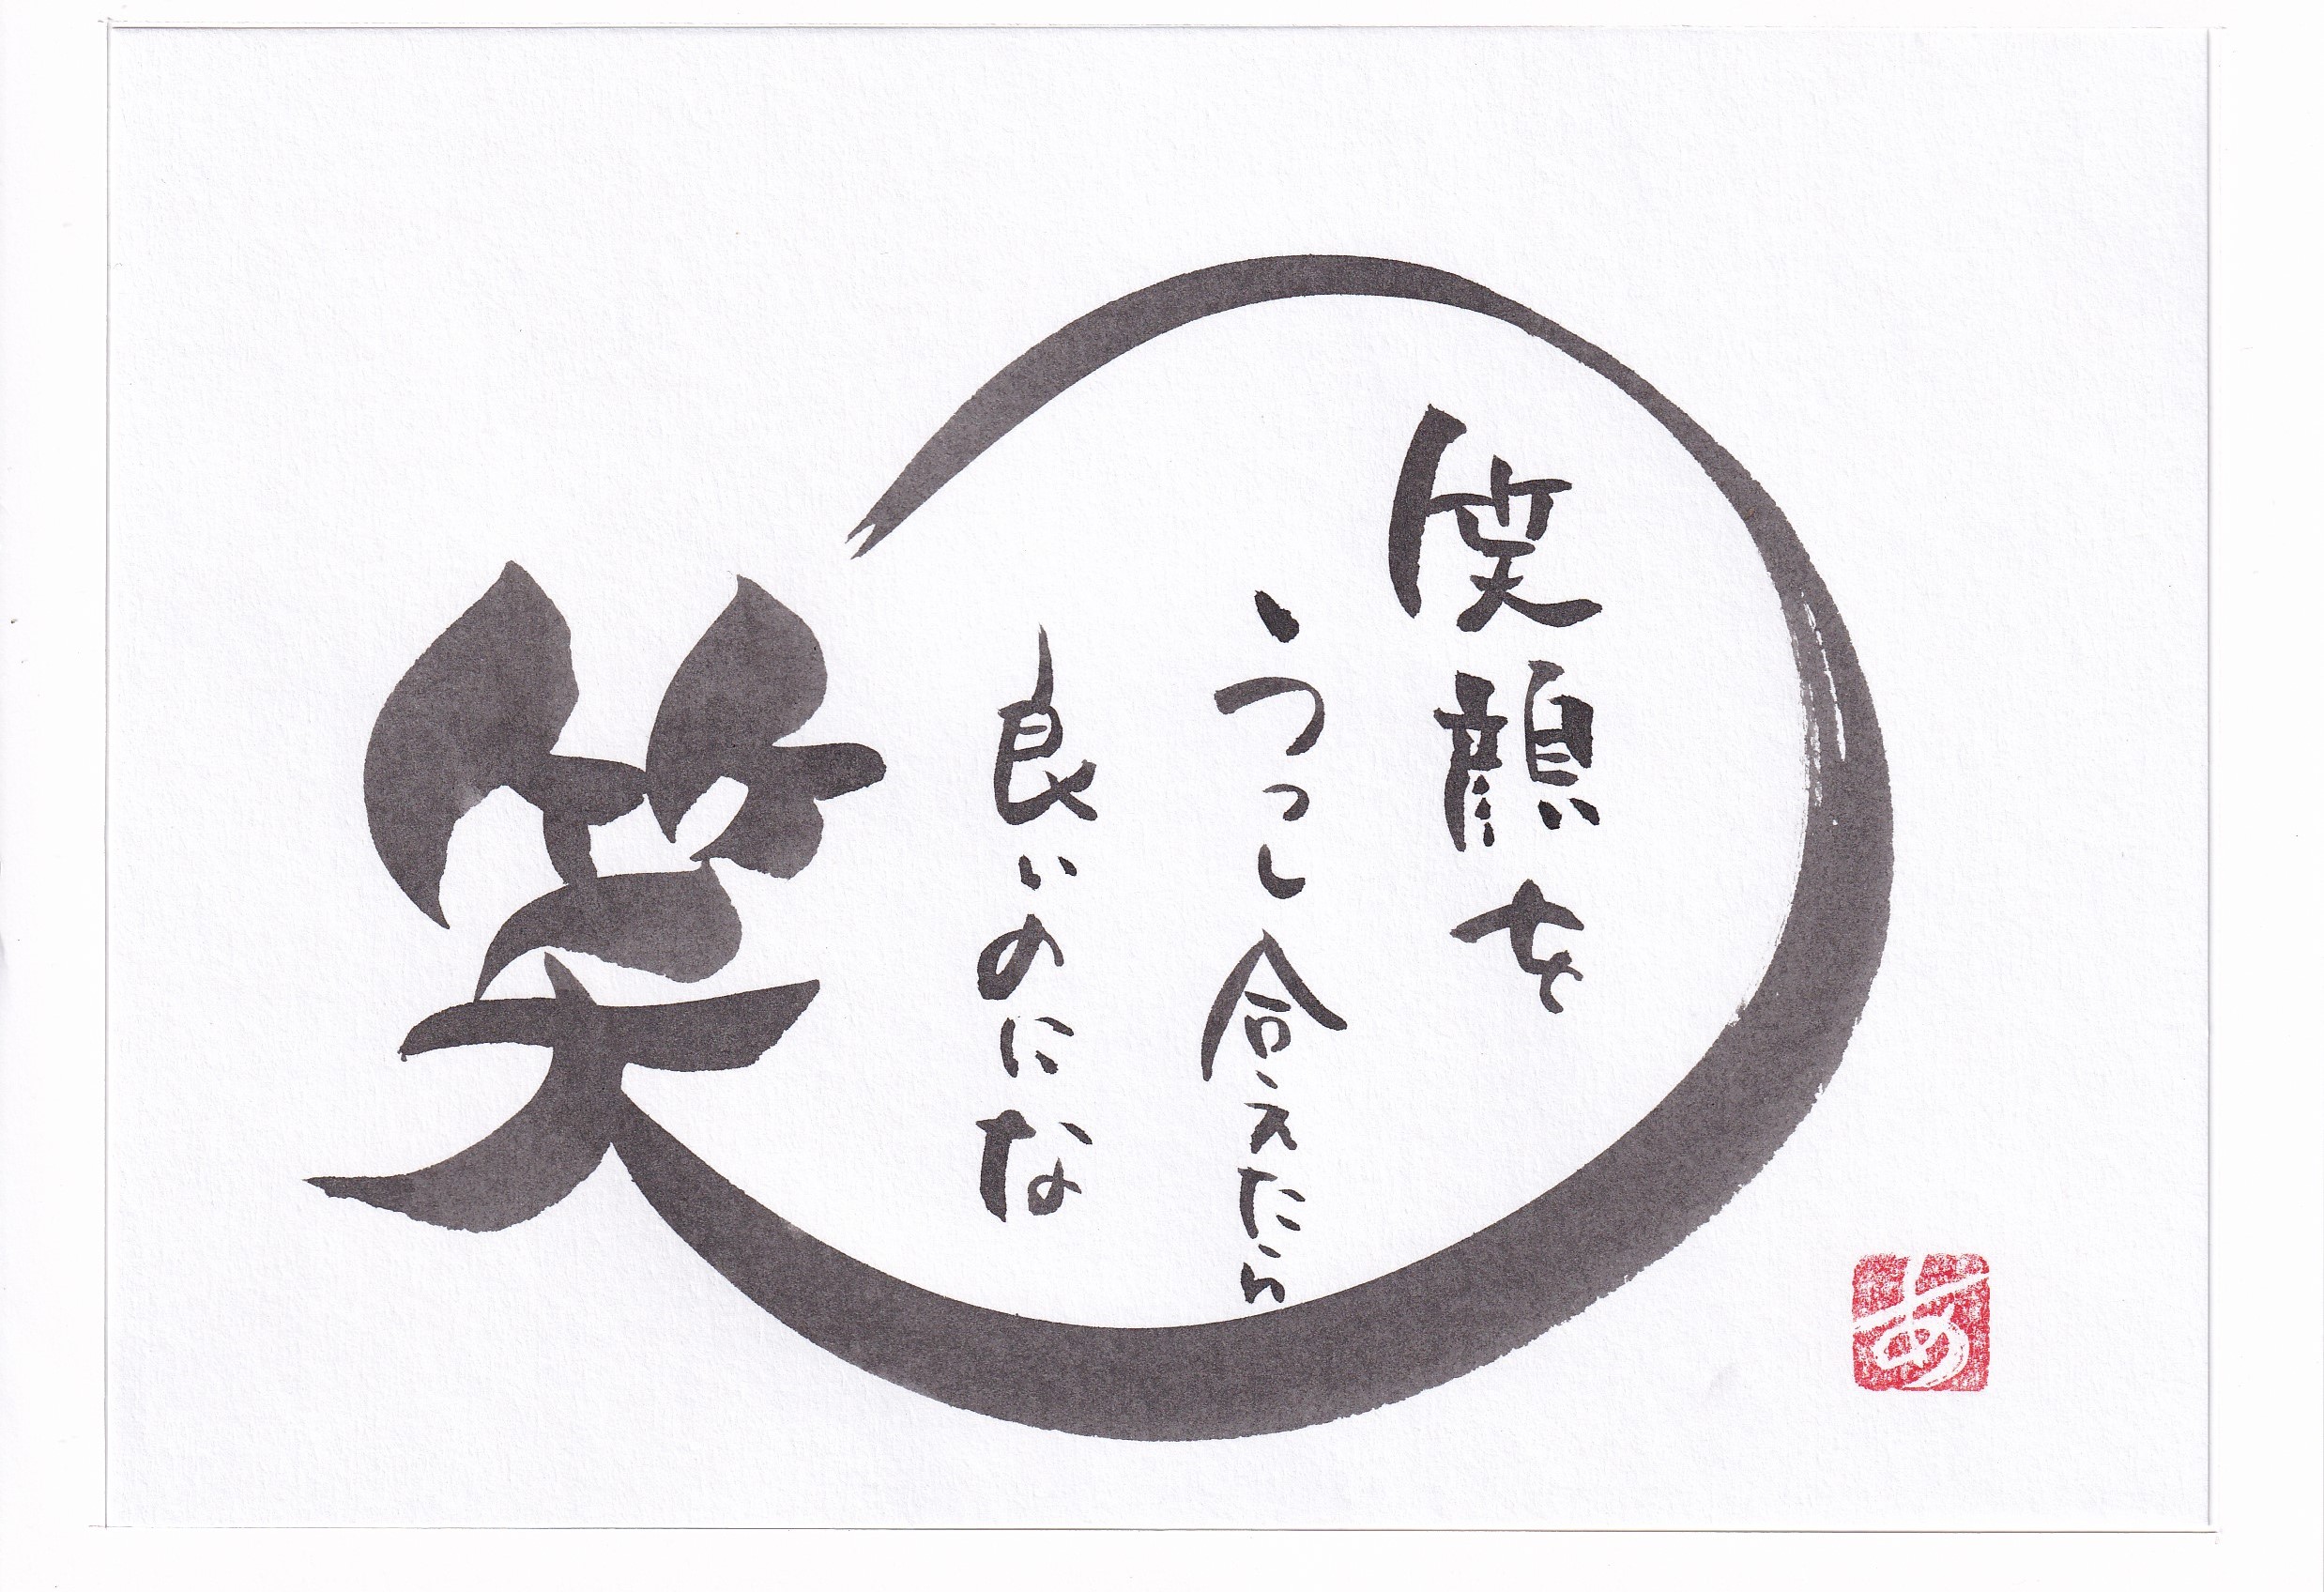 笑顔を
うつし合えたら
良いのにな
笑
あ